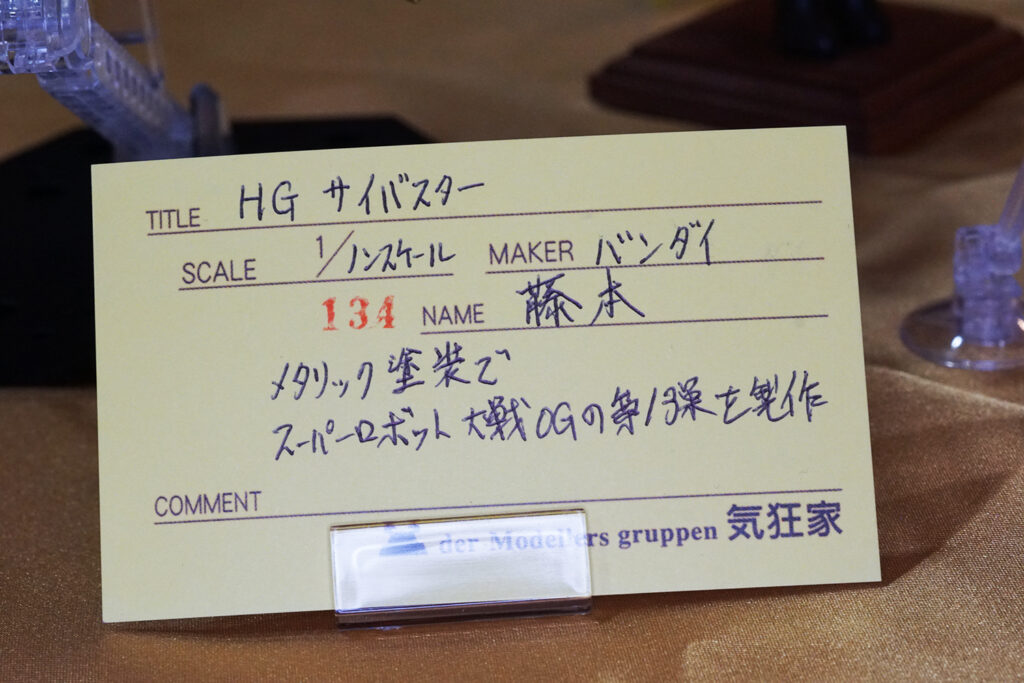 TITLE HG サイバスター
SCALE 1/ノンスケール MAKER バンダイ
134 NAME 藤本
メタリック塗装で
スーパーロボット大戦OGの第1弾を製作
COMMENT
der Modellers gruppen 気狂家